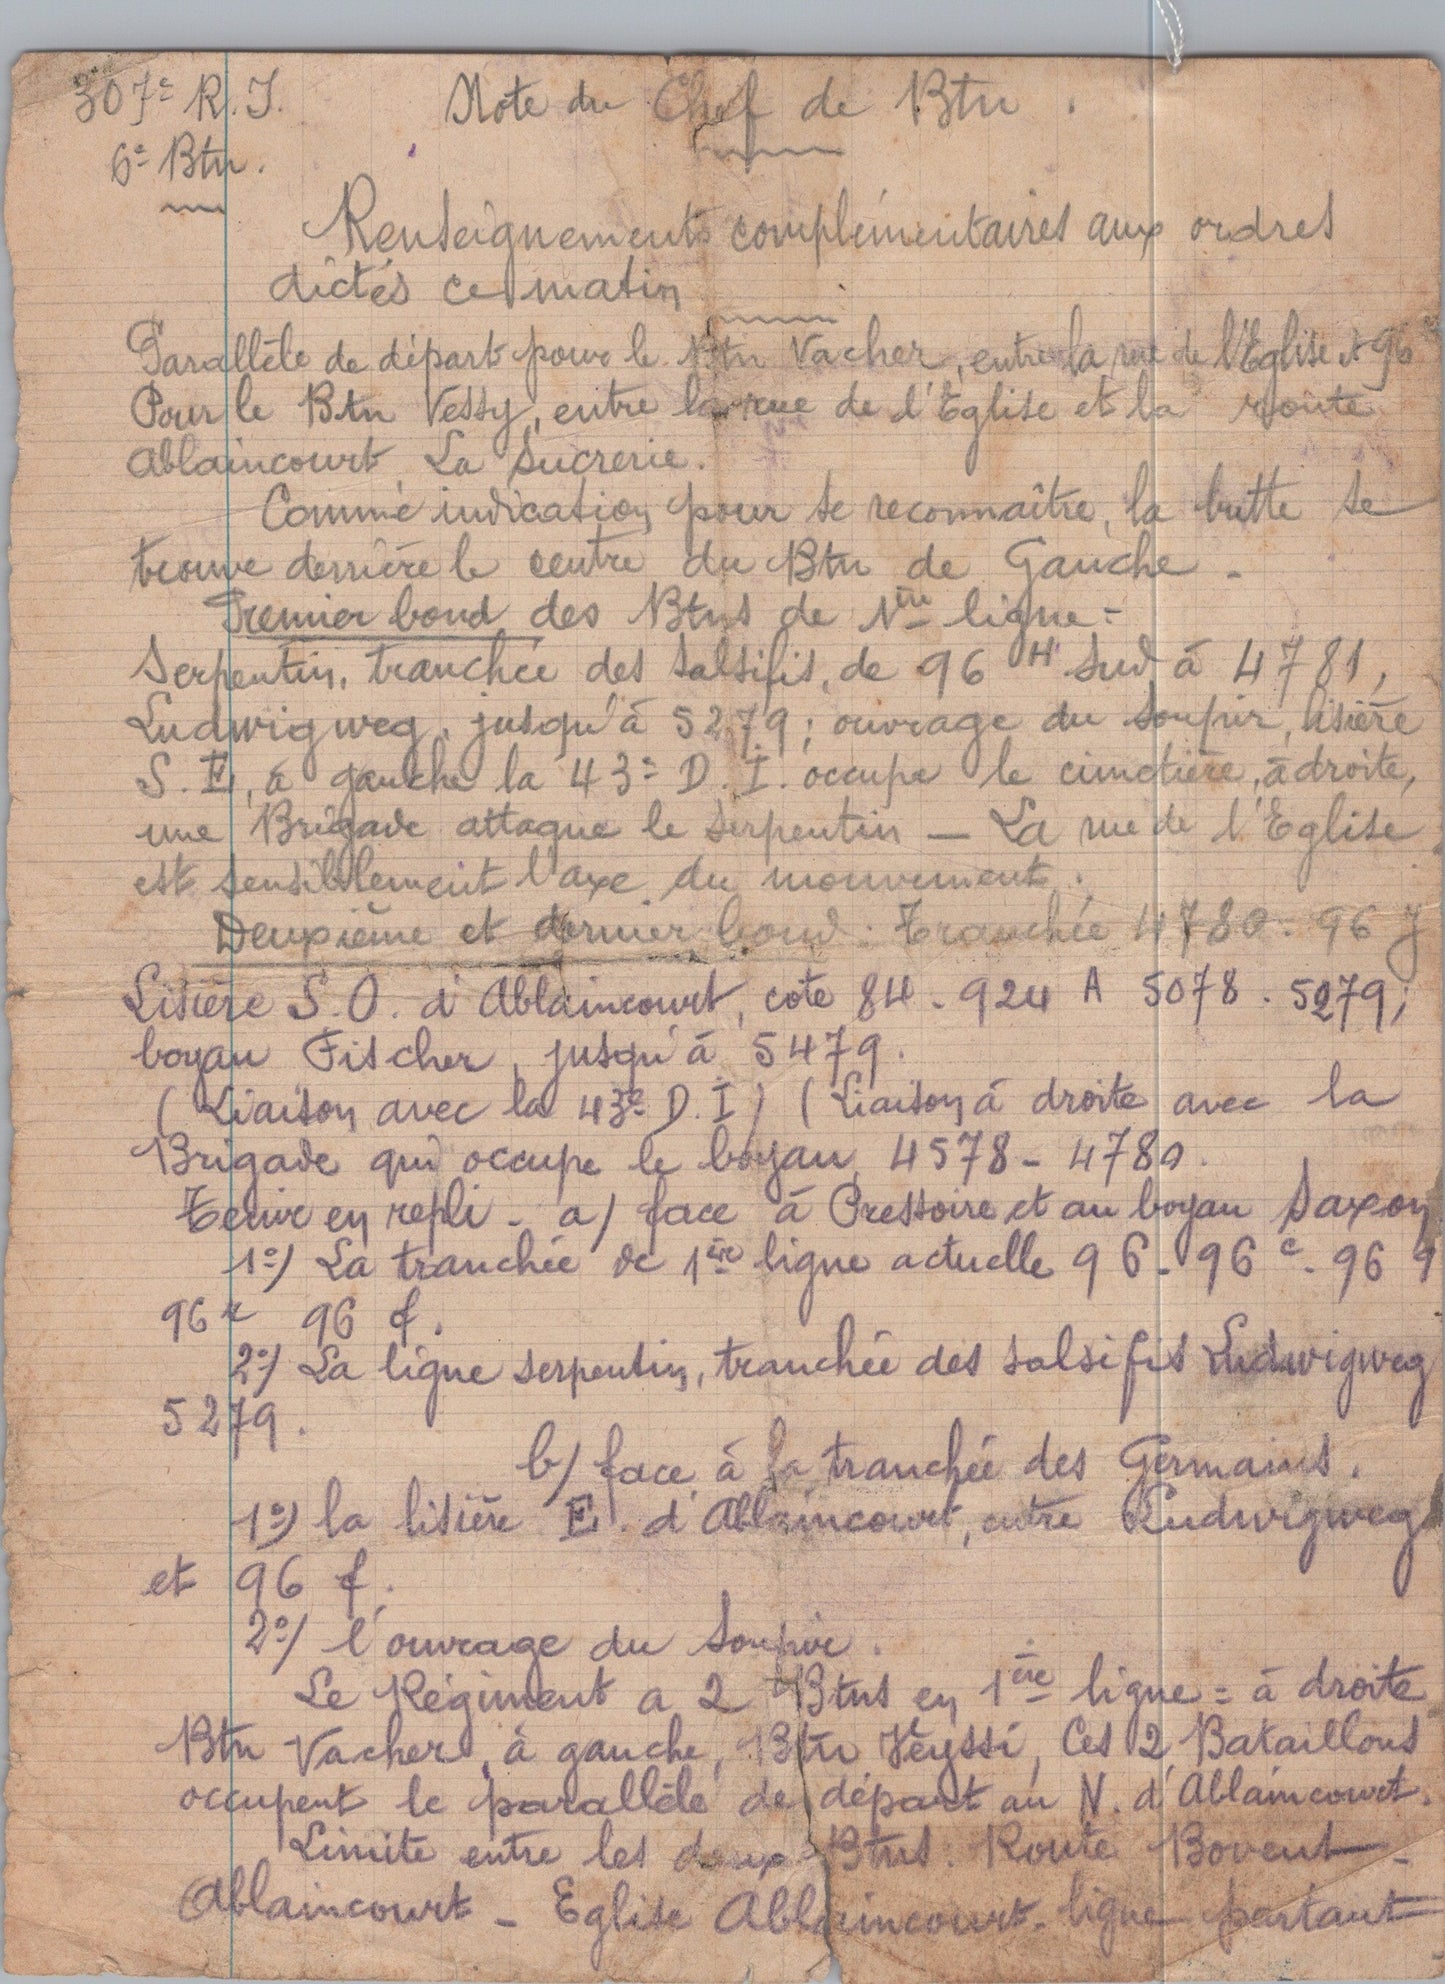 307e R.I. Note du Chef de Btn.
6e Btn.
Renseignements complémentaires aux ordres
dictés ce matin
Parallèle de départ pour le Btn Vacher, entre la rue de l'Eglise et 96
Pour le Btn Vessy, entre la rue de l'Eglise et la route
Ablaincourt La Sucrerie.
Comme indication pour se reconnaître, la butte se
trouve derrière le centre du Btn de Gauche -
Premier bond des Btns de 1ère ligne =
Serpentin, tranchée des Salsifis, de 96 H Sud à 4781,
Ludwigweg, jusqu'à 5279; ouvrage du Soupir, lisière
S. E, à gauche la 43e D.I. occupe le cimetière, à droite,
une Brigade attaque le Serpentin — La rue de l'Eglise
est sensiblement l'axe du mouvement.
Deuxième et dernier bond. Tranchée 4780 - 96 J
Lisière S.O. d'Ablaincourt, cote 84 - 924 A 5078 - 5279;
boyau Fischer, jusqu'à 5479.
(Liaison avec la 43e D.I) (Liaison à droite avec la
Brigade qui occupe le boyau 4578 - 4780.
en repli - a/ face à Pressoire et au boyau Saxon
1°/ La tranchée de 1ère ligne actuelle 96 - 96 c - 96 9
96 96 f.
2°/ La ligne serpentin, tranchée des salsifis Ludwigweg
5279.
b/ face à la tranchée des Germains.
1°/ la lisière E. d'Ablaincourt, entre Ludwigweg
et 96 f.
2°/ l'ouvrage du Soupir.
Le Régiment a 2 Btns en 1ère ligne = à droite
Btn Vacher, à gauche, Btn Veyssi, Ces 2 Bataillons
occupent le parallèle de départ au N. d'Ablaincourt.
Limite entre les deux Btns. Route Bovent -
Ablaincourt - Eglise Ablaincourt - ligne partant